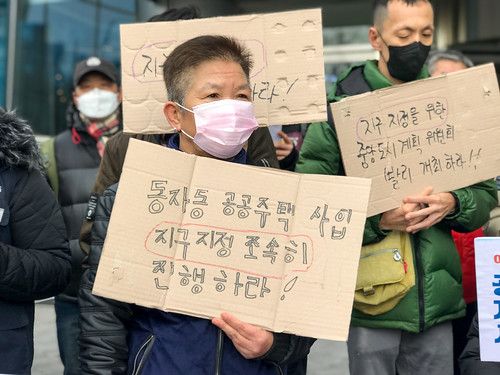 지구
하라!
동자동 공공주택 사업
지구 지정 조속히
진행하라!
지구 지정을 위한
중앙도시계획 위원회
빨리 개최하라!!